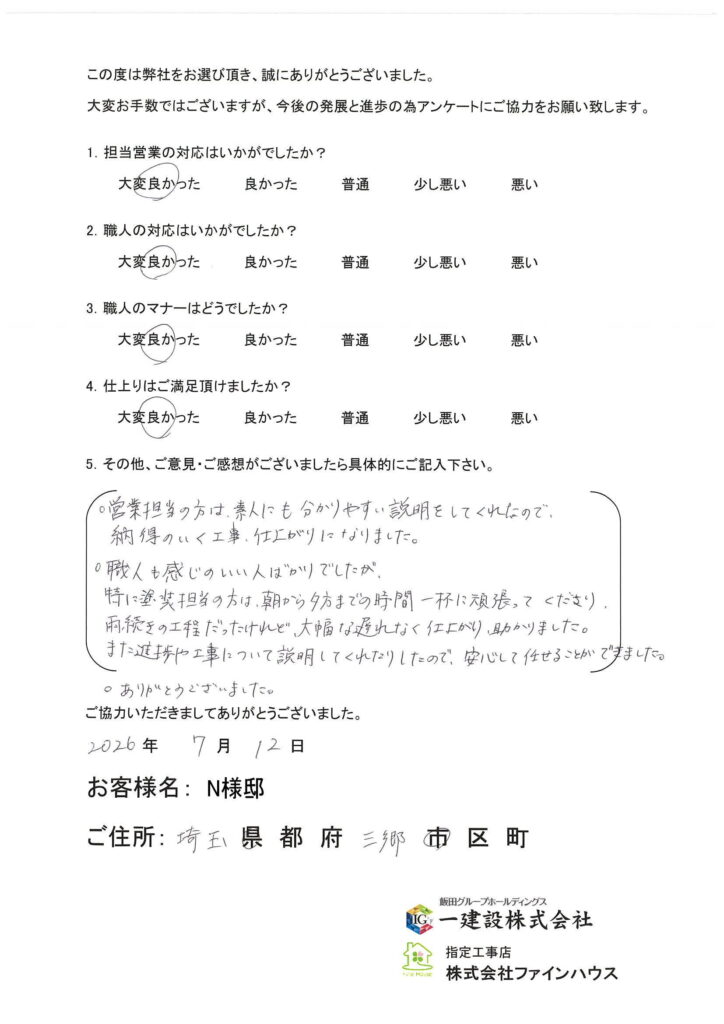 この度は弊社をお選び頂き、誠にありがとうございました。
大変お手数ではございますが、今後の発展と進歩の為アンケートにご協力をお願い致します。
1. 担当営業の対応はいかがでしたか？
大変良かった 良かった 普通 少し悪い 悪い
2. 職人の対応はいかがでしたか？
大変良かった 良かった 普通 少し悪い 悪い
3. 職人のマナーはどうでしたか？
大変良かった 良かった 普通 少し悪い 悪い
4. 仕上りはご満足頂けましたか？
大変良かった 良かった 普通 少し悪い 悪い
5. その他、ご意見・ご感想がございましたら具体的にご記入下さい。
○営業担当の方は、素人にも分かりやすい説明をしてくれたので、
納得のいく工事、仕上がりになりました。
○職人も感じのいい人ばかりでしたが、
特に塗装担当の方は、朝から夕方までの時間一杯に頑張ってくださり、
雨続きの工程だったけれど、大幅な遅れなく仕上がり、助かりました。
また進捗や工事について説明してくれたりしたので、安心して任せることができました。
○ありがとうございました。
ご協力いただきましてありがとうございました。
2026年 7月 12日
お客様名： N様邸
ご住所： 埼玉 県 都 府 三郷 市 区 町
飯田グループホールディングス
IG 一建設株式会社
指定工事店
株式会社ファインハウス